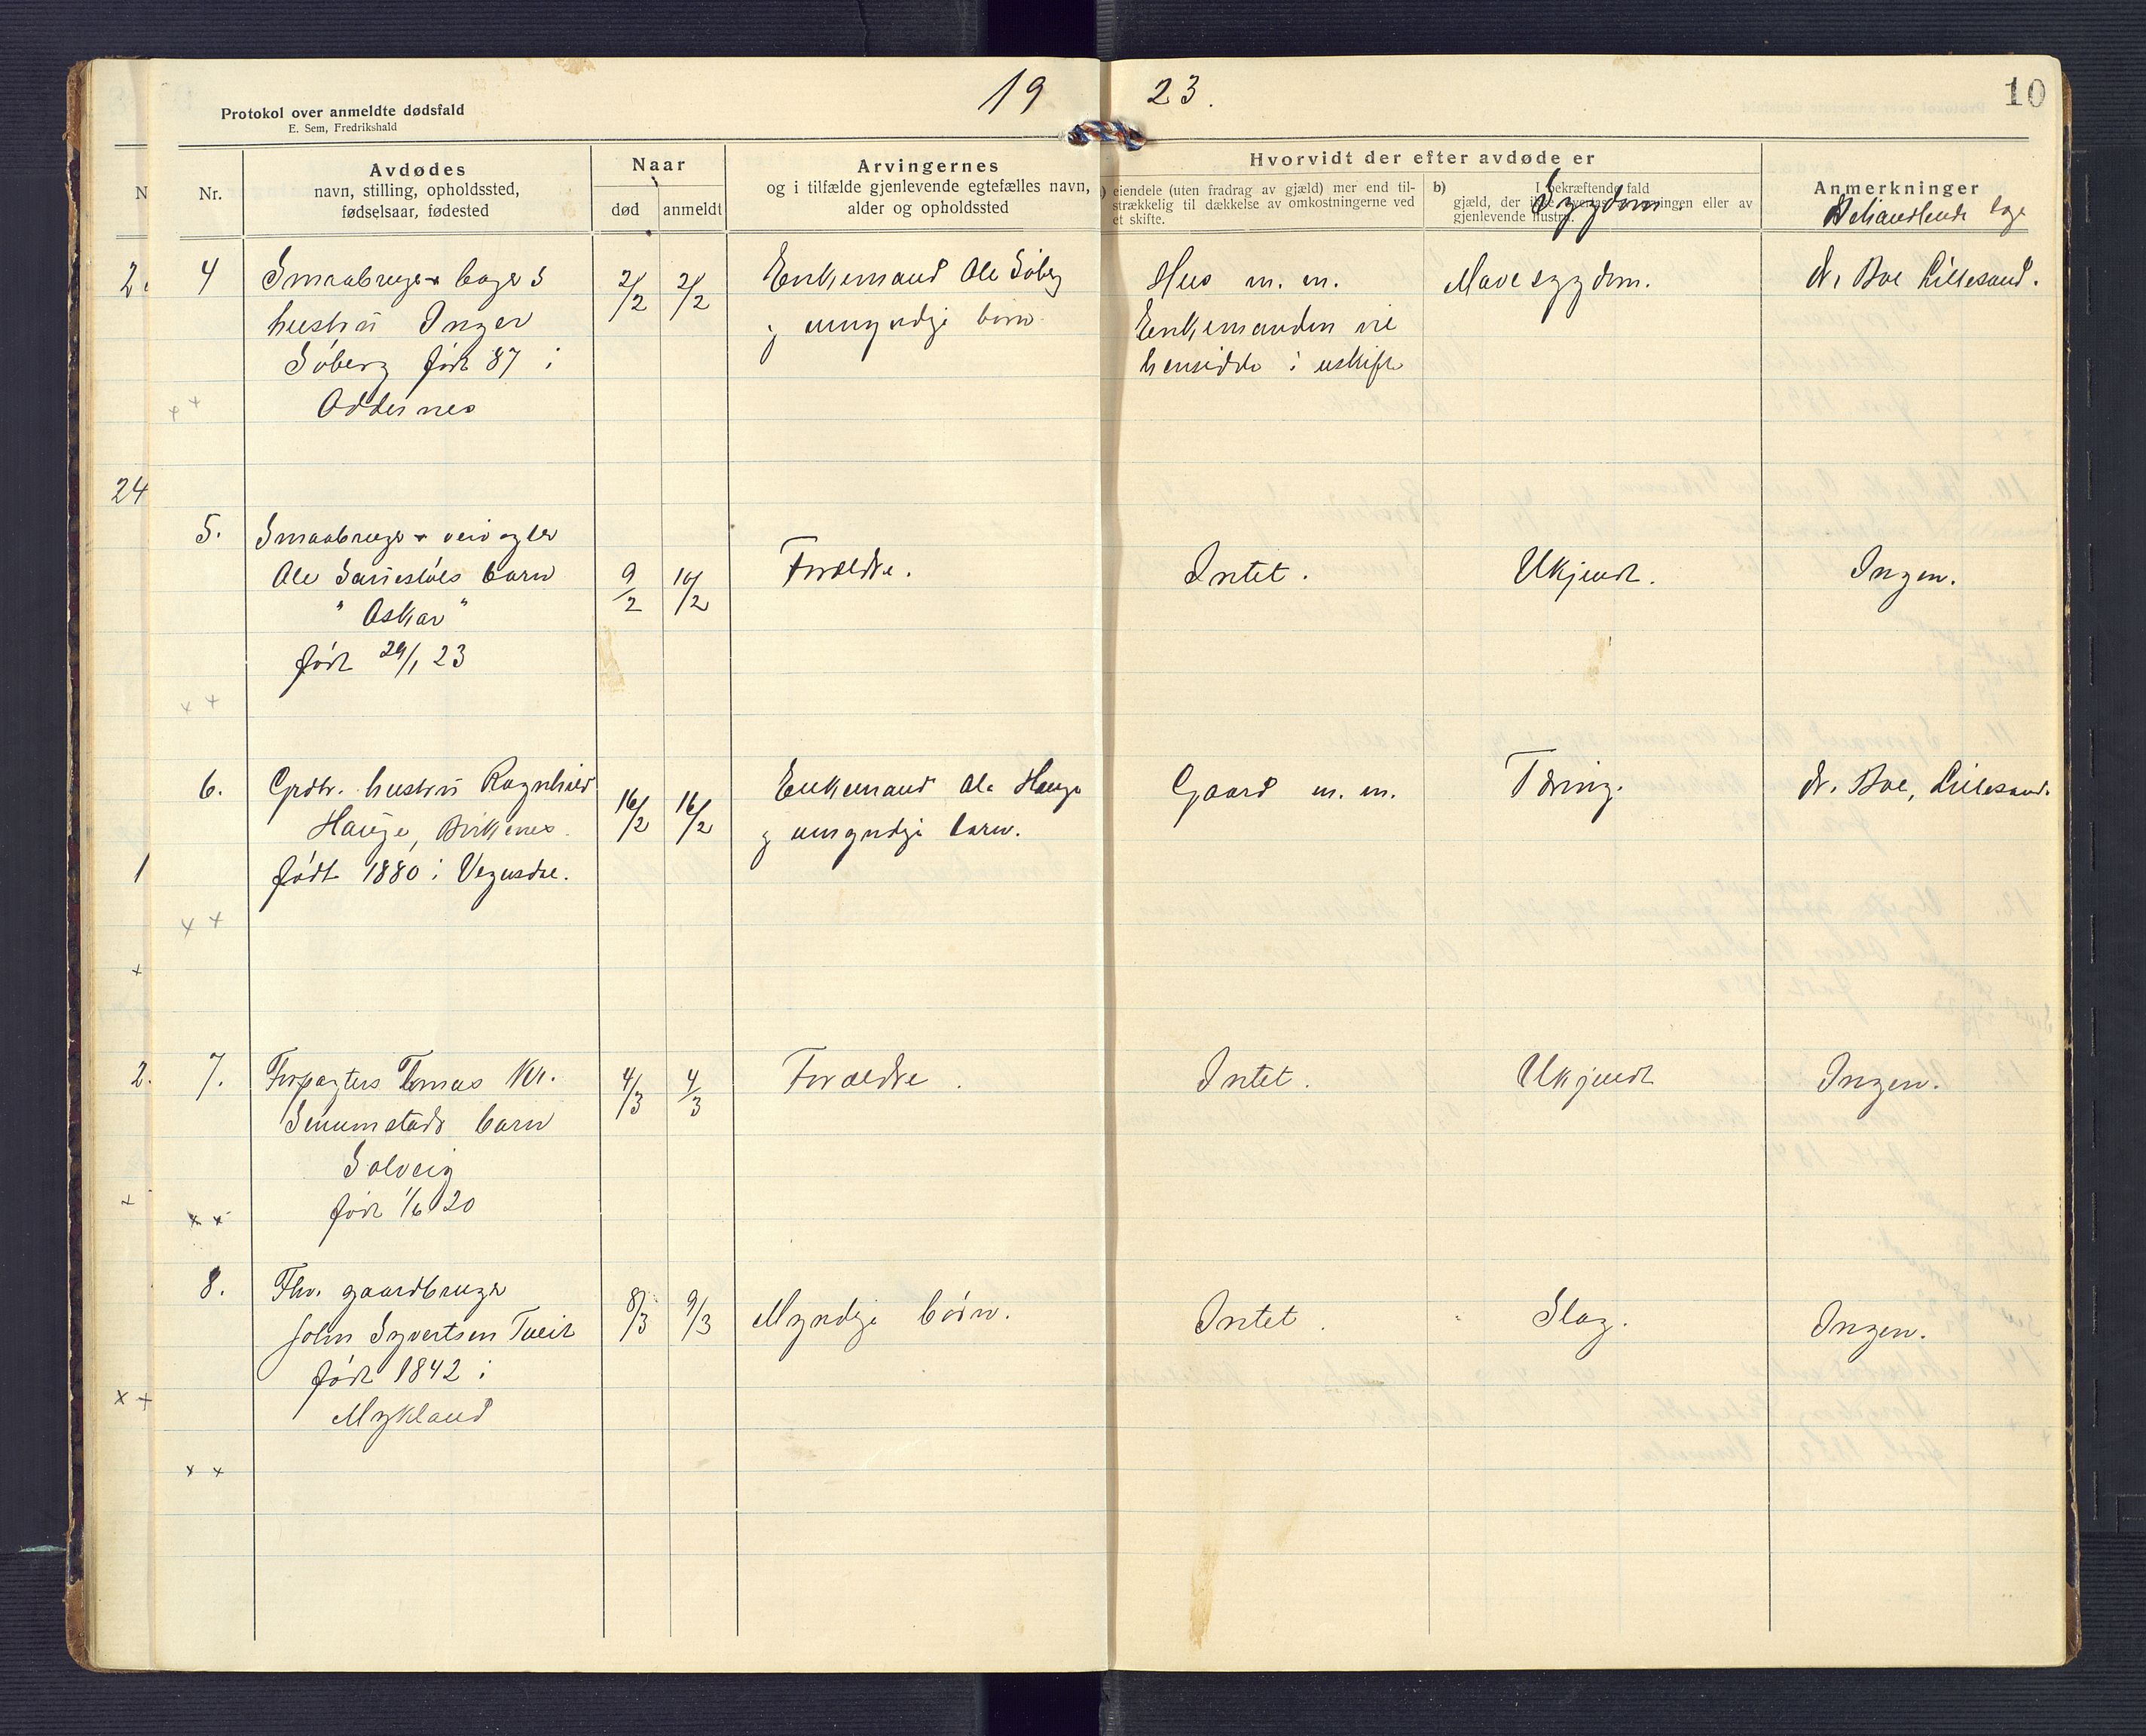 19 23.
10
Protokol over anmeldte dødsfald
E. Sem, Fredrikshald
N
Nr.
Avdødes
navn, stilling, opholdssted,
fødselsaar, fødested
Naar
død
anmeldt
Arvingernes
og i tilfælde gjenlevende egtefælles navn,
alder og opholdssted
Hvorvidt der efter avdøde er
eiendele (uten fradrag av gjæld) mer end til-
strækkelig til dækkelse av omkostningerne ved
et skifte.
b) I bekræftende fald
gjæld, der ikke overtas av arvingen eller av
gjenlevende hustru.
Sygdom.
Anmerkninger
Behandlende læge
4
Smaabruger & bagers
hustru Inger
Søberg født 87 i
Oddernes
2/2
2/2
Enkemand Ole Søberg
og umyndige børn.
Hus m. m.
Enkemanden vil
hensidde i uskifte
Mavesygdom.
dr. Boe Lillesand.
24
5.
Smaabruger &
Ole barn
" Oskar "
født 29/1 23
9/2
10/2
Forældre.
Intet.
Ukjendt.
Ingen.
6.
Grdbr. hustru Ragnhild
Hauge, Birkenes.
født 1880 i Vegusdal.
16/2
16/2
Enkemand Ole Hauge
og umyndige barn.
Gaard m. m.
Tæring.
dr. Boe, Lillesand.
1
2.
7.
Forpagters Tomas Kr.
Senumstads barn
Solveig
født 1/6 20
4/3
4/3
Forældre.
Intet.
Ukjendt
Ingen.
8.
Fhv. gaardbruger
John Syvertsen Tveit
født 1842 i
Mykland
8/3
9/3
Myndige børn.
Intet.
Slag.
Ingen.